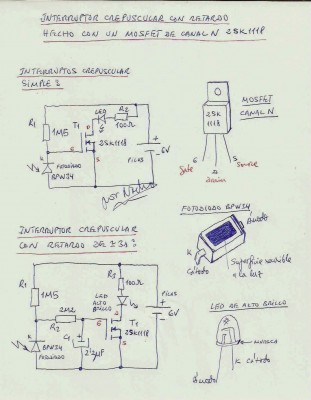 INTERRUPTOR CREPUSCULAR CON RETARDO
HECHO CON UN MOSFET DE CANAL N 2SK1118
INTERRUPTOS CREPUSCULAR
SIMPLE:
R1
1M5
K
FOTODIODO
BPW34
T1
G
D
S
2SK1118
LED
R2
100Ω
+
6V
PILAS
2SK
1118
MOSFET
CANAL N
G
Gate
D
Drain
S
Source
INTERRUPTOR CREPUSCULAR
CON RETARDO DE ±3s:
R1
1M5
2M2
R2
K
BPW34
FOTODIODO
C1
2,2μF
LED
ALTO
BRILLO
R3
100Ω
T1
G
D
S
2SK1118
PILAS
+
6V
FOTODIODO BPW34
Ánodo
K
Cátodo
Superficie sensible
a la luz
LED DE ALTO BRILLO
MUESCA
K Cátodo
Ánodo